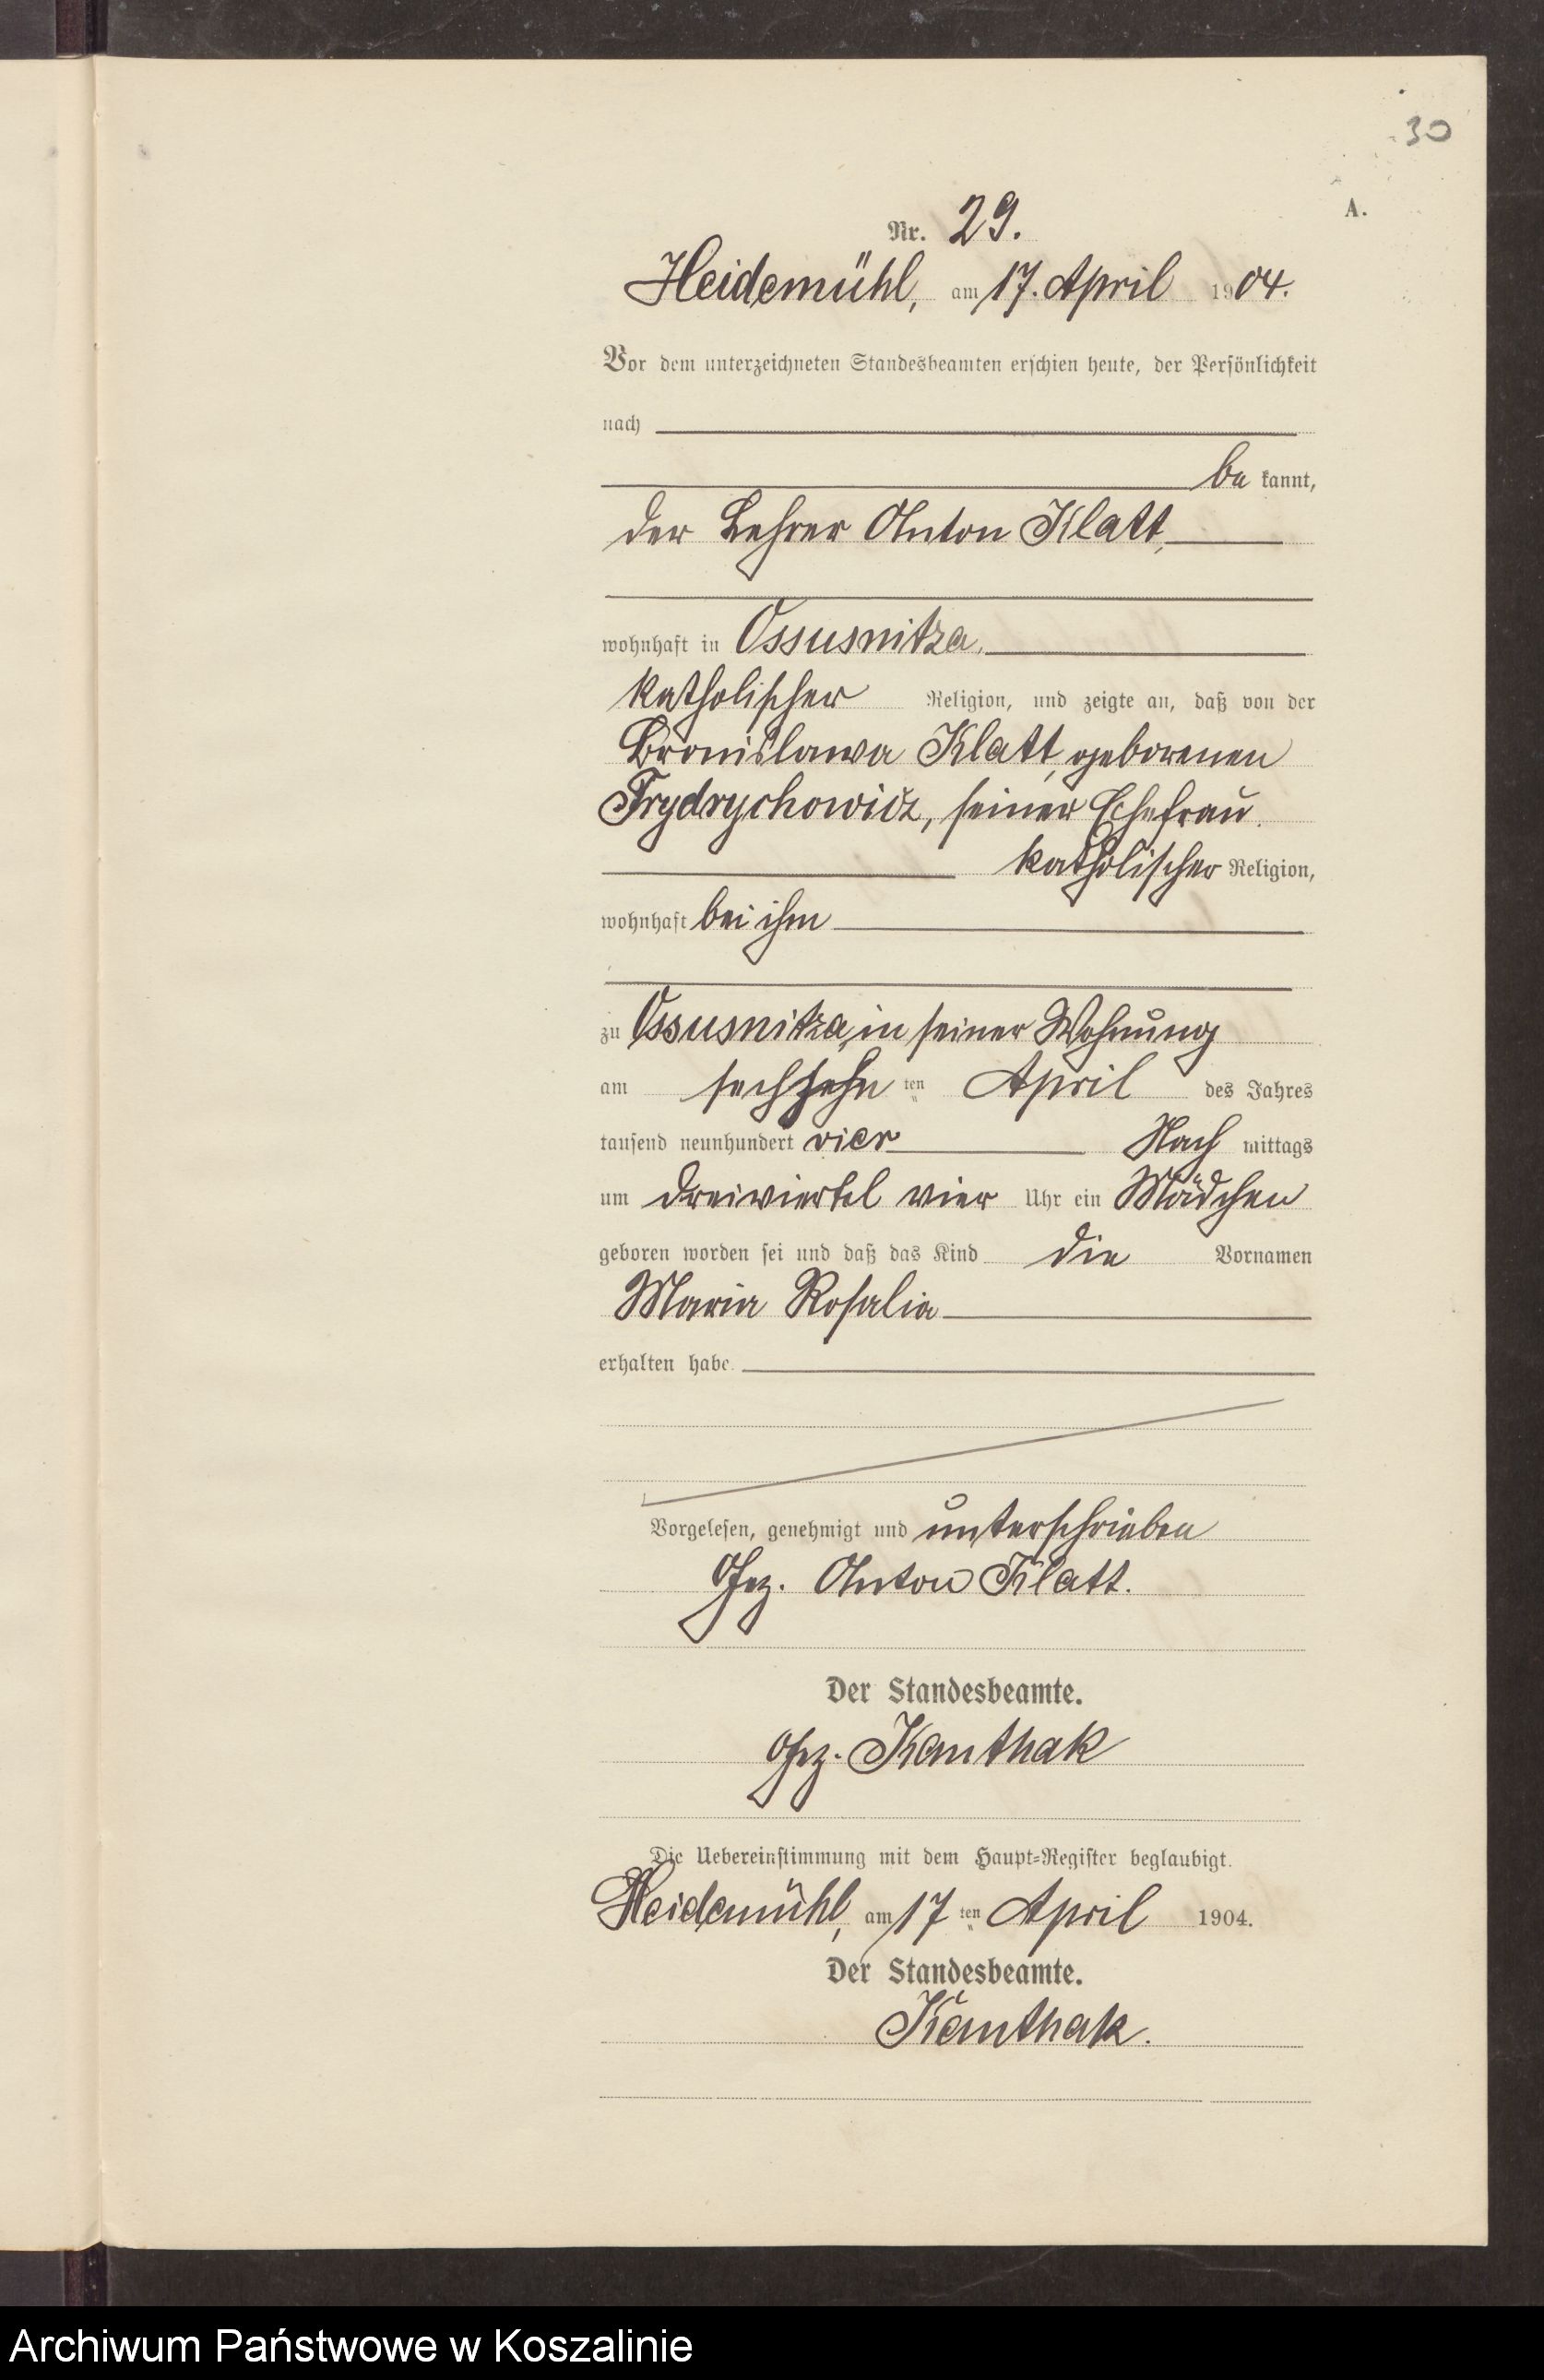 30
A.
Nr. 29.
Heidemühl, am 17. April 1904.
Vor dem unterzeichneten Standesbeamten erschien heute, der Persönlichkeit
nach
be kannt,
der Lehrer Anton Klatt,
wohnhaft in Ossusnitza,
katholischer Religion, und zeigte an, daß von der
Bronislawa Klatt, geborenen
Frydrychowicz, seiner Ehefrau.
katholischer Religion,
wohnhaft bei ihm
zu Ossusnitza, in seiner Wohnung
am sechzehn ten April des Jahres
tausend neunhundert vier Nach mittags
um dreiviertel vier Uhr ein Mädchen
geboren worden sei und daß das Kind die Vornamen
Maria Rosalia
erhalten habe.
Vorgelesen, genehmigt und unterschrieben
Gez. Anton Klatt.
Der Standesbeamte.
Gez. Kanthak
Die Uebereinstimmung mit dem Haupt=Register beglaubigt.
Heidemühl, am 17 ten April 1904.
Der Standesbeamte.
Kanthak.
Archiwum Państwowe w Koszalinie